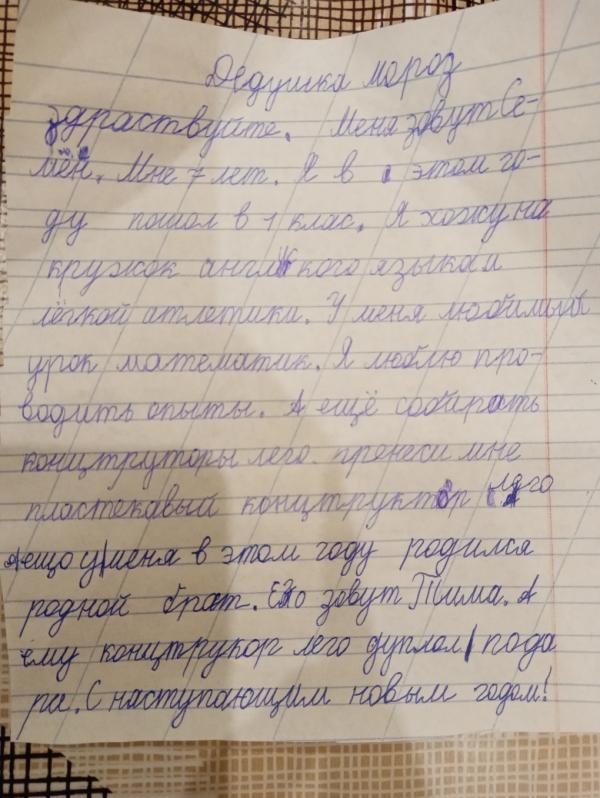 Дедушка мороз
здраствуйте. Меня зовут Се-
мён. Мне 7 лет. Я в этом го-
ду пошол в 1 клас. Я хожу на
кружок англ кого языка и
лёгкой атлетики. У меня любимый
урок математик. Я люблю про-
водить опыты. А ещё собирать
концтруторы лего. пренеси мне
пластекавый концтруктор лего
А ещо у меня в этом году родился
родной брат. Его зовут Тима. А
ему концтрукор лего дупло пода
ри. С наступающим новым годом!